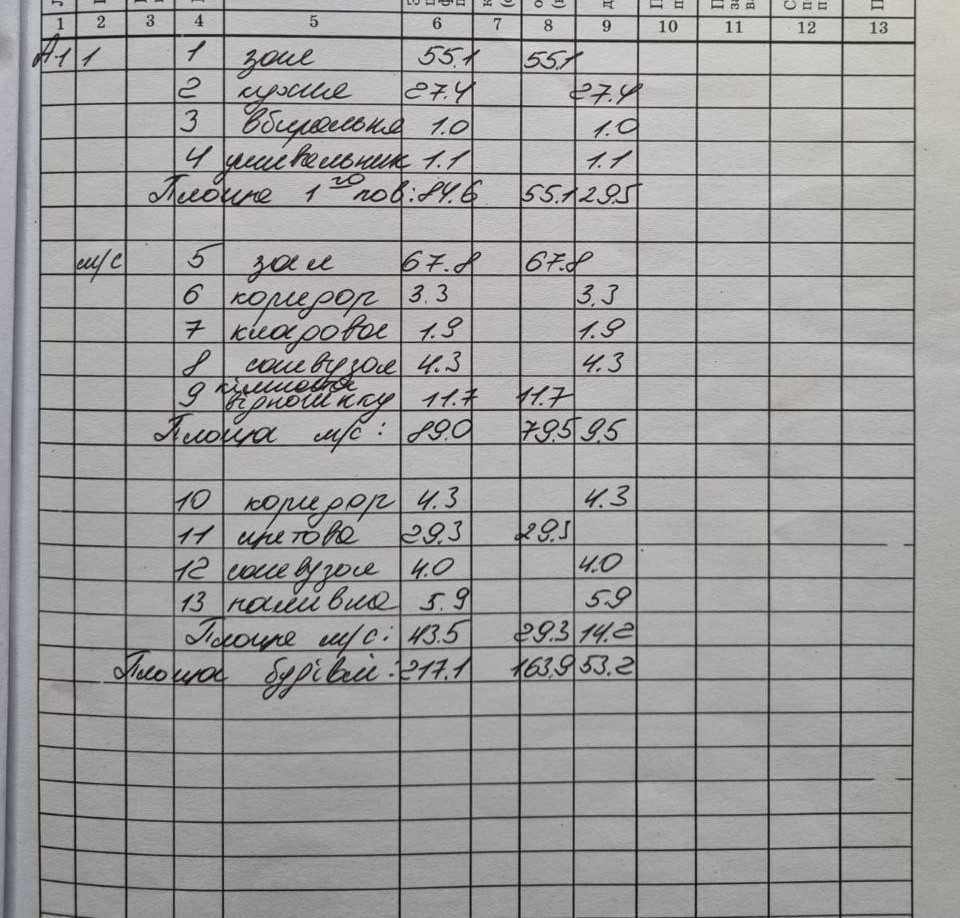 1 2 3 4 5 6 7 8 9 10 11 12 13
А-1 1 1 зал 55.1 55.1
2 кухня 27.4 27.4
3 вбиральня 1.0 1.0
4 умивальник 1.1 1.1
Площа 1го пов: 84.6 55.1 29.5
м/с 5 зал 67.8 67.8
6 коридор 3.3 3.3
7 кладова 1.9 1.9
8 санвузол 4.3 4.3
9 кімната
відпочинку 11.7 11.7
Площа м/с: 89.0 79.5 9.5
10 коридор 4.3 4.3
11 29.3 29.3
12 санвузол 4.0 4.0
13 5.9 5.9
Площа м/с: 43.5 29.3 14.2
Площа будівлі: 217.1 163.9 53.2